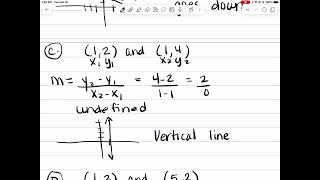 goes down
C. (1,2) and (1,4)
x₁ y₁ x₂ y₂
m = y₂-y₁/x₂-x₁ = 4-2/1-1 = 2/0
undefined
Vertical line
(1,2) and (5,2)